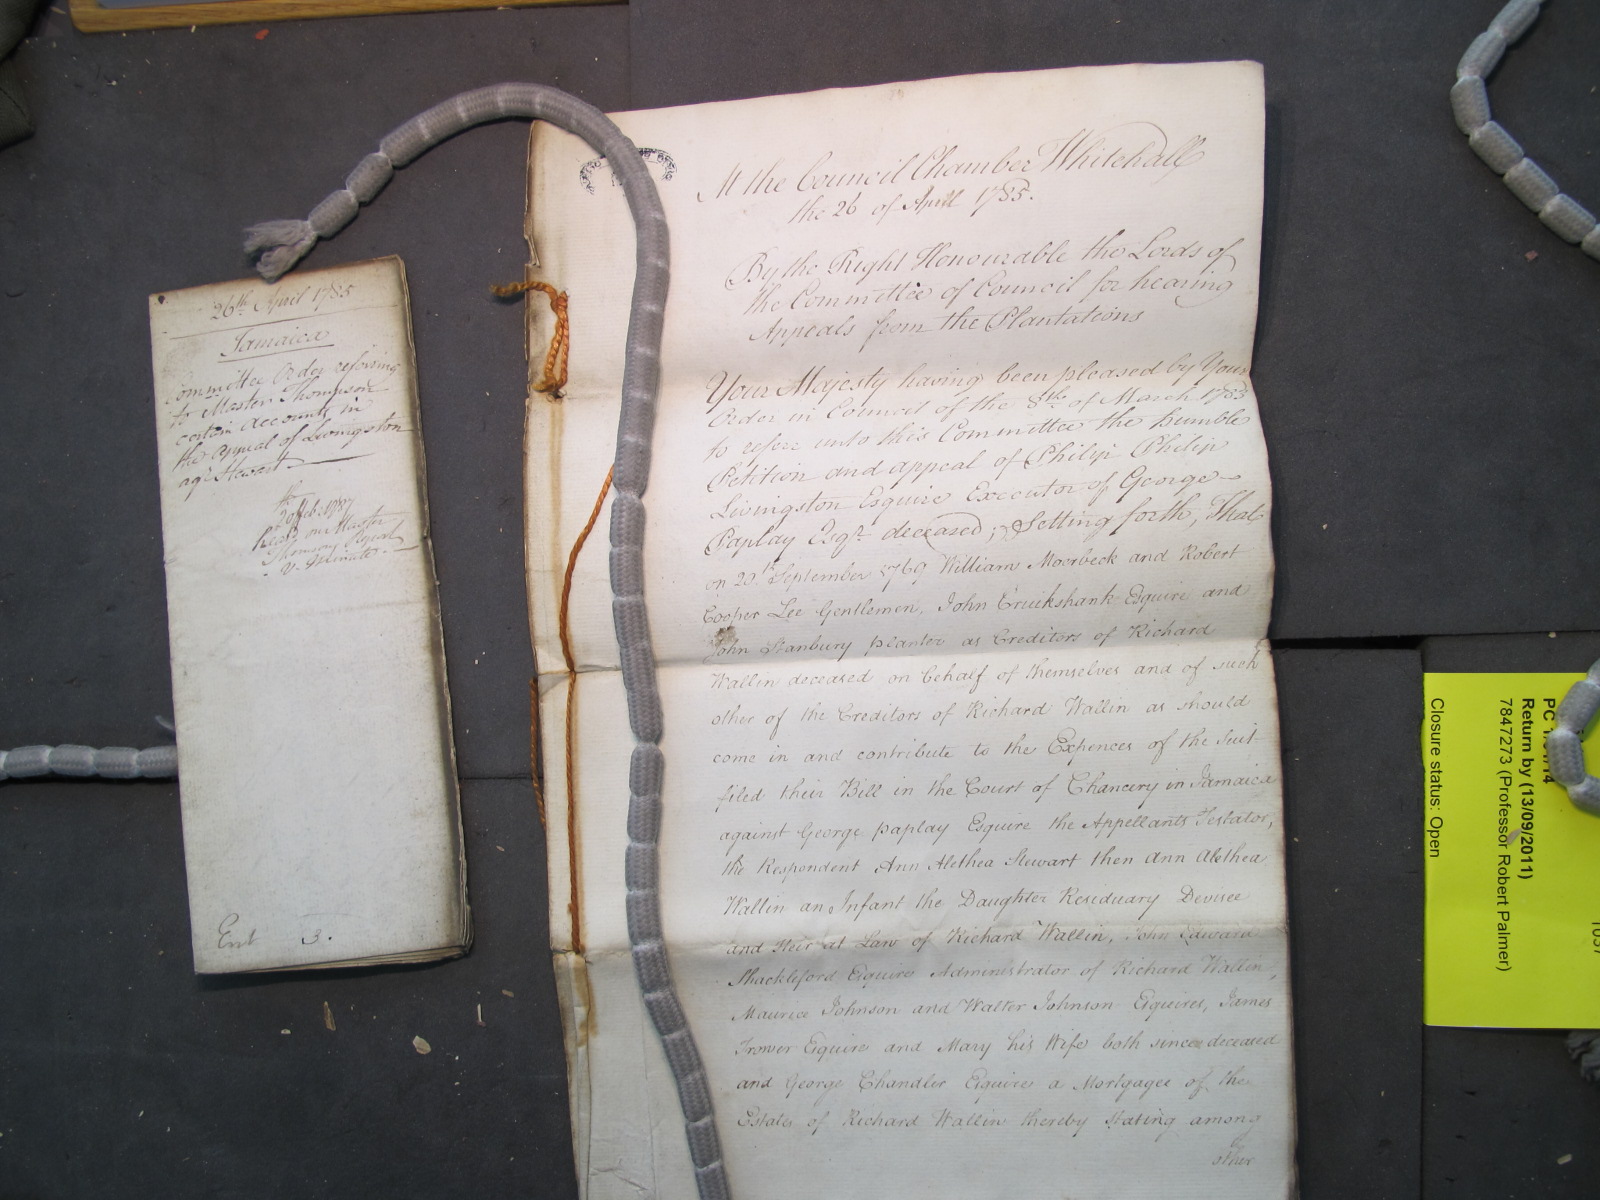 26th April 1785
Jamaica
Committee Order referring
to Master Thompson
certain Accounts in
the Appeal of Livingston
agt Stewart
20 Feb: 1787
heard on Master
v. Minute
Ent 3.
At the Council Chamber Whitehall
the 26 of April 1785.
By the Right Honourable the Lords of
the Committee of Council for hearing
Appeals from the Plantations
Your Majesty having been pleased by Your
Order in Council of the 8th of March 1783
to referr unto this Committee the humble
Petition and appeal of Philip Philip
Livingston Esquire Executor of George
Paplay Esqr. deceased; Setting forth, That
on 20th September 1769 William Moorbeck and Robert
Cooper Lee Gentlemen, John Cruikshank Esquire and
John Stanbury planter as Creditors of Richard
Wallin deceased on behalf of themselves and of such
other of the Creditors of Richard Wallin as should
come in and contribute to the Expences of the suit
filed their Bill in the Court of Chancery in Jamaica
against George Paplay Esquire the Appellants Testator,
the Respondent Ann Alethea Stewart then Ann Alethea
Wallin an Infant the Daughter Residuary Devisee
and Heir at Law of Richard Wallin, John Edward
Shackleford Esquire Administrator of Richard Wallin,
Maurice Johnson and Walter Johnson Esquires, James
Trower Esquire and Mary his Wife both since deceased
and George Chandler Esquires a Mortgagee of the
Estates of Richard Wallin thereby stating among
other
Return by (13/09/2011)
7847273 (Professor Robert Palmer)
Closure status: Open